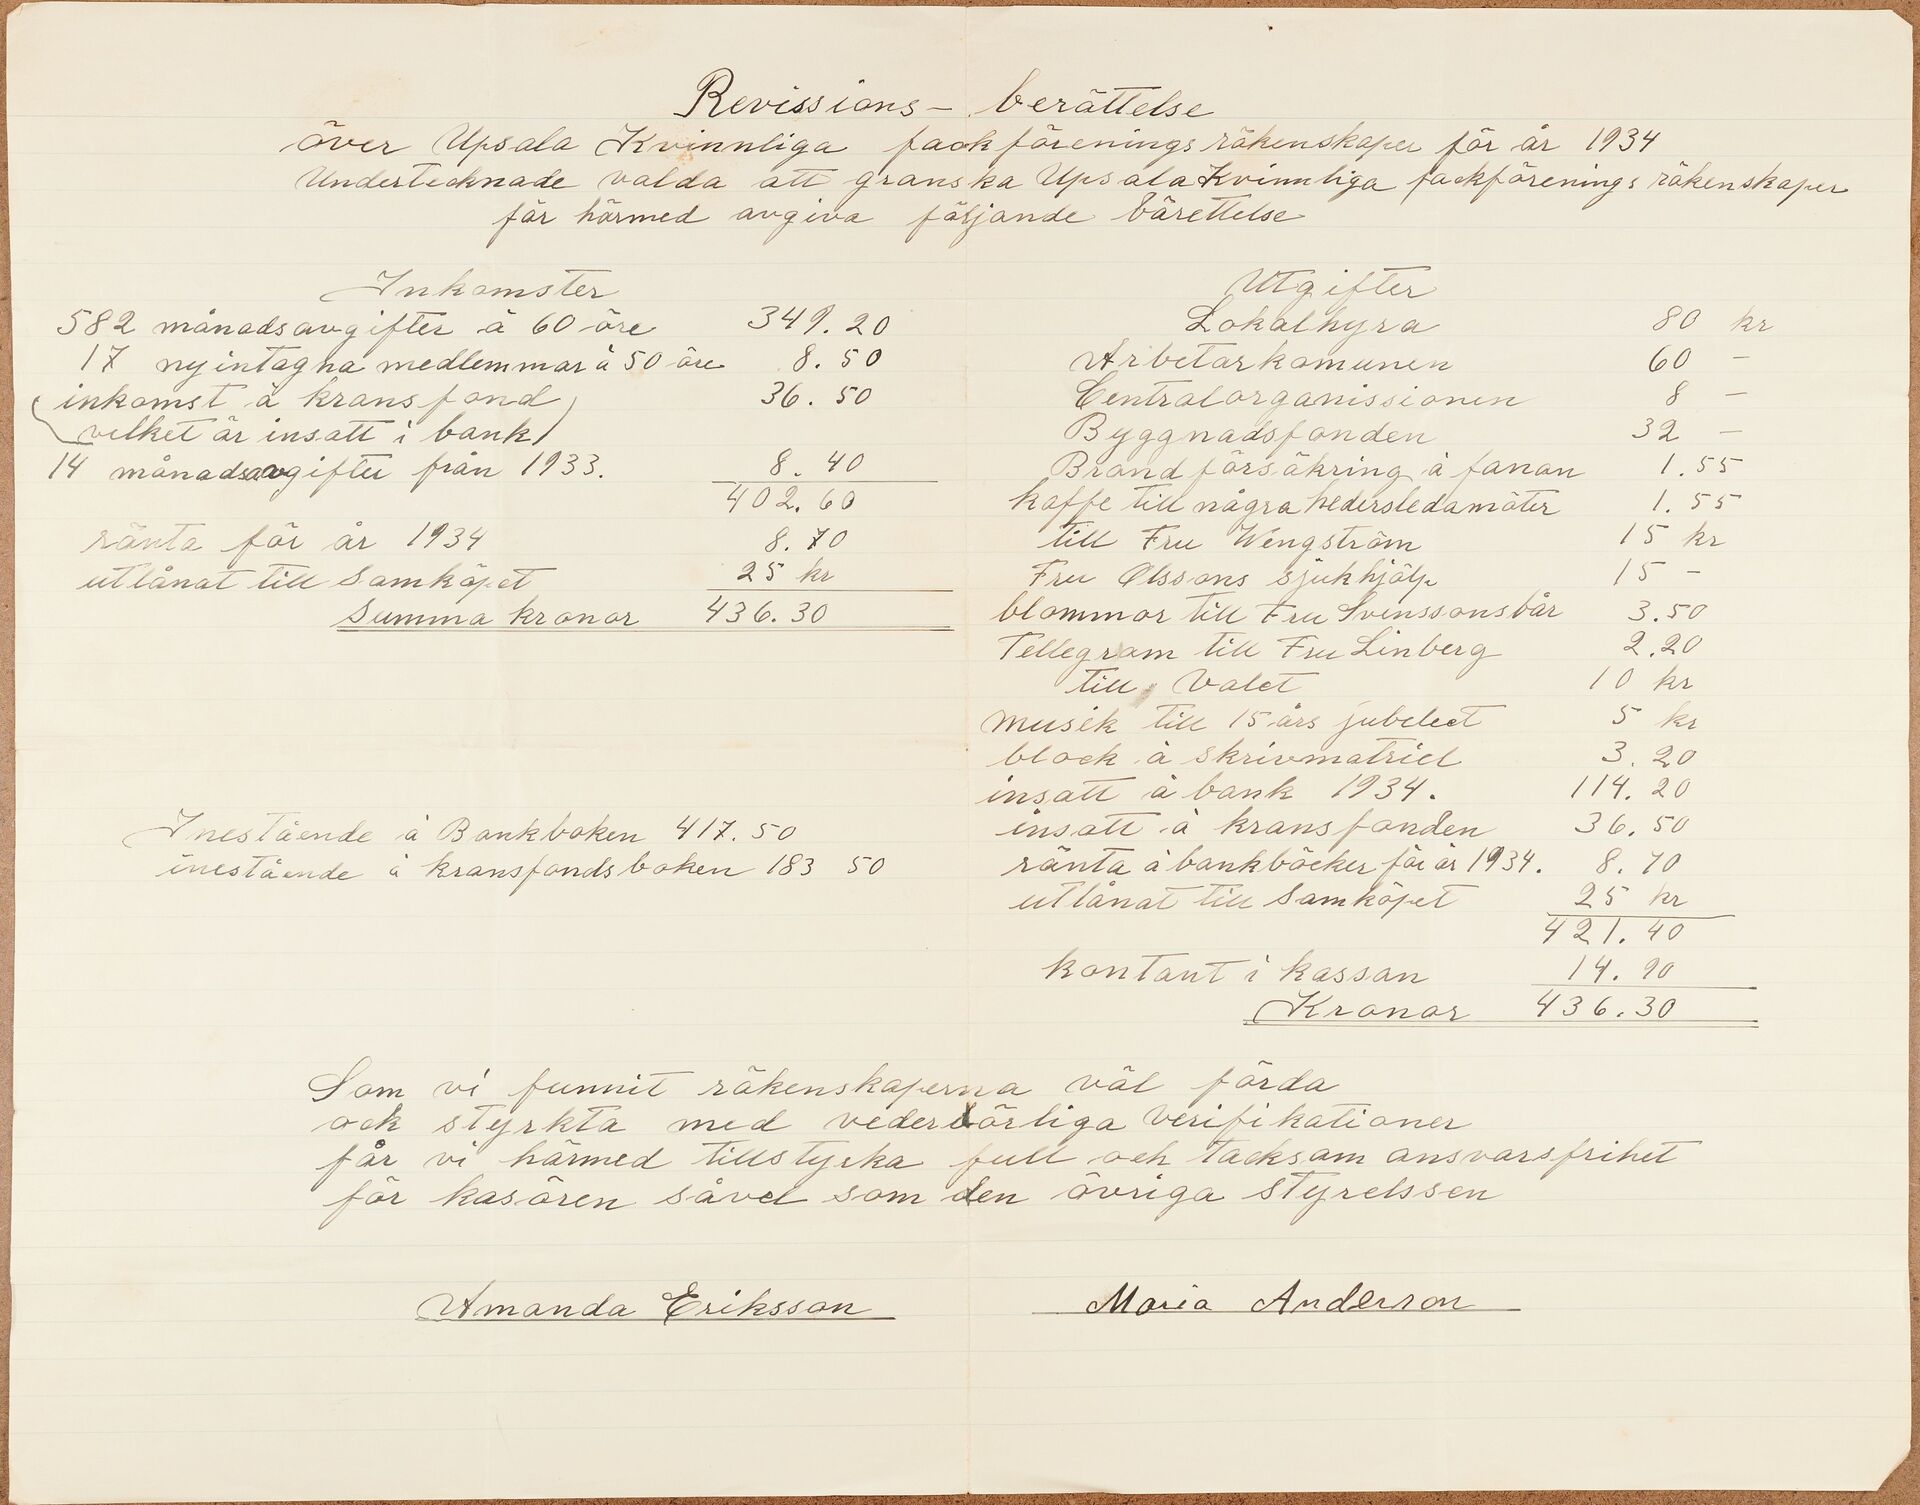 Revissions- berättelse
över Upsala Kvinnliga fackförenings räkenskaper för år 1934
Undertecknade valda att granska Upsala Kvinnliga fackförenings räkenskaper
får härmed avgiva följande bärettelse
Inkomster
582 månadsavgifter á 60 öre 349.20
17 nyintagna medlemmar á 50 öre 8.50
(inkomst á kransfond)
(velket är insatt i bank) 36.50
14 månadsavgifter från 1933. 8.40
402.60
ränta för år 1934 8.70
utlånat till Samköpet 25 kr
Summa kronor 436.30
Inestående á Bankboken 417.50
inestående á kransfondsboken 183 50
Utgifter
Lokalhyra 80 kr
Arbetarkomunen 60 -
Centralorganissionen 8 -
Byggnadsfonden 32 -
Brandförsäkring á fanan 1.55
kaffe till några hedersledamöter 1.55
till Fru Wengström 15 kr
Fru Olssons sjukhjälp 15 -
blommor till Fru Svenssons bår 3.50
Tellegram till Fru Linberg 2.20
till Valet 10 kr
musik till 15 års jubeleet 5 kr
block á skrivmatriel 3.20
insatt á bank 1934. 114.20
insatt á kransfonden 36.50
ränta á bankböcker för år 1934. 8.70
utlånat till Samköpet 25 kr
421.40
kontant i kassan 14.90
Kronor 436.30
Som vi funnit räkenskaperna väl förda
ock styrkta med vederbörliga verifikationer
får vi härmed tillstyrka full och tacksam ansvarsfrihet
för kasören såvel som den övriga styrelssen
Amanda Eriksson Maria Anderson